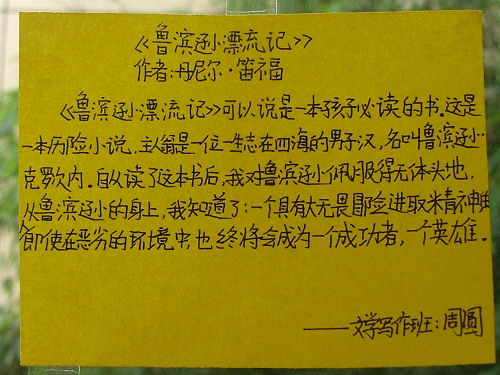 《鲁滨逊漂流记》
作者:丹尼尔·笛福
《鲁滨逊漂流记》可以说是一本孩子必读的书.这是
一本历险小说,主人翁是一位一生志在四海的男子汉,名叫鲁滨逊
克罗索.自从读了这本书后,我对鲁滨逊佩服得五体头地,
从鲁滨逊的身上,我知道了:一个具有大无畏冒险进取精神的
即使在恶劣的环境中,也终将会成为一个成功者,一个英雄.
——文学写作班:周圆